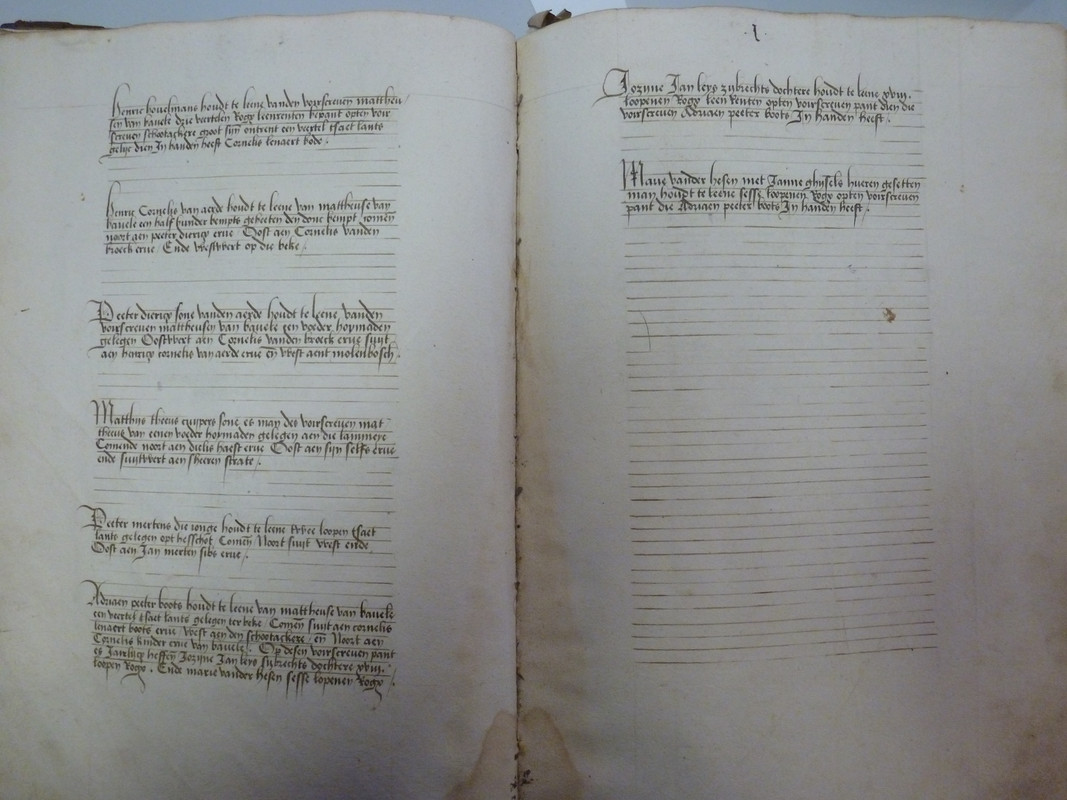 Henric houelmans houdt te leene vanden voirscreven mattheu
sen van bauele drie vertelen Rogx leenrenten bepant opten voir
screven schootackere groot sijn ontrent een vertel tsaet lants
gelijc dien In handen heeft Cornelis lenaert bode
Henric Cornelis van aerde houdt te leene van mattheuse van
bauele een half bunder bempts geheeten den bempt Comen
noort aen peeter diericx erue Oost aen Cornelis vanden
broeck erue Ende westwert op die beke
Peeter diericx sone vanden aerde houdt te leene vanden
voirscreven mattheusen van bauele een voeder hoymaden
gelegen Oostwert aen Cornelis vanden broeck erue suyt
aen henricx cornelis van aerde erue en west aent molenbosch
Matthijs theeus cuypers sone es man des voirscreven mat
theeus van eenen voeder hoymaden gelegen aen die
Comende noort aen dielis haest erue Oost aen sijn selfs erue
ende suytwert aen sheeren strate
Peeter mertens die ionge houdt te leene twee loopen tsaet
lants gelegen opt hesschot Comen Noort suyt west ende
Oost aen Jan merten sibs erue
Adriaen peeter boots houdt te leene van mattheuse van bauele
een vertel tsaet lants gelegen ter beke Comen suyt aen cornelis
lenaert boots erue west aen den schootackere en Noort aen
Cornelis kinder erue van bauele Op desen voirscreven pant
es Jaerlijcx heffen Jozijne Jan leys zijbrechts dochtere xviij
loopen Rogx Ende marie vander hesen sesse loopenen Rogx
l
Jozijne Jan leys zijbrechts dochtere houdt te leene xviij
loopenen Rogx leen renten opten voirscreven pant dien die
voirscreven Adriaen peeter boots In handen heeft
Marie vander hesen met Janne ghijsels hueren gesetten
man houdt te leene sesse loopenen Rogx opten voirscreven
pant die Adriaen peeter boots In handen heeft